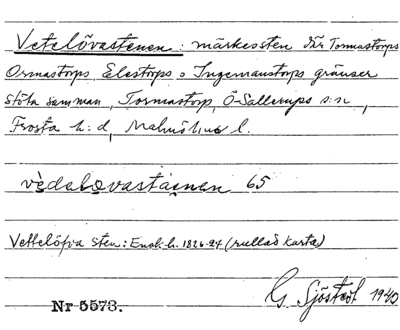 Vetelövastenen: märkessten där Tormastorps
Ormastorps, Elestorps o Ingemanstorps gränser
stöta samman, Tormastorp, Ö. Sallerups s:n,
Frosta h:d, Malmöhus l.
vèdaləvastainen 65
Vettelöfva sten: Ensk.h. 1826-27 (rullad karta)
G. Sjöstedt 1940
Nr 5573.